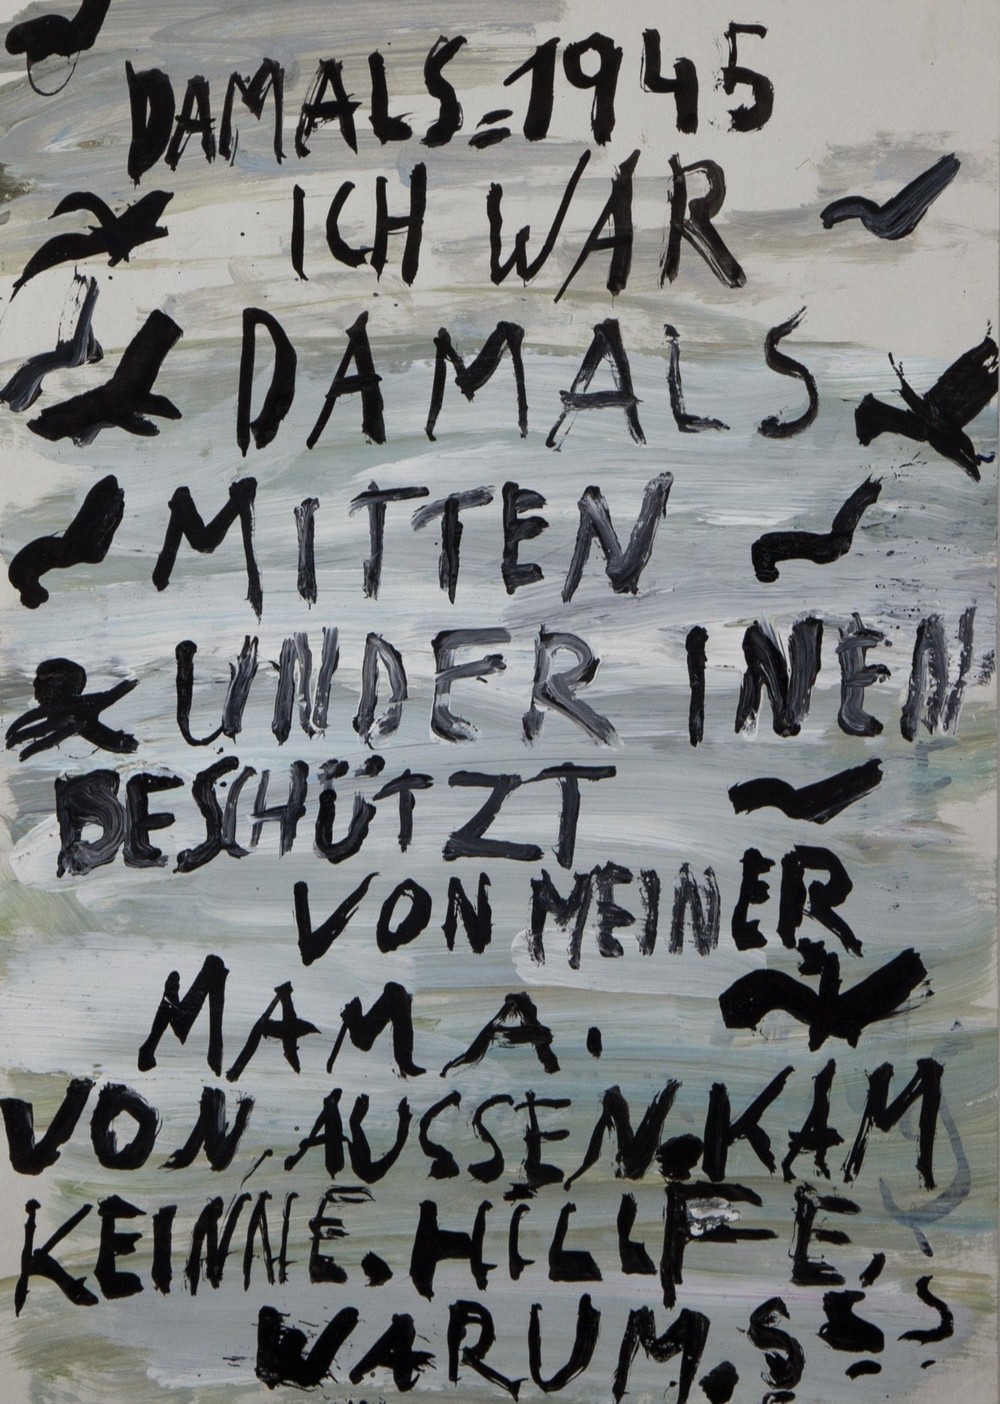 DAMALS=1945
ICH WAR
DAMALS
MITTEN
UNDER INEN
BESCHÜTZT
VON MEINER
MAMA.
VON, AUSSEN.KAM
KEINNE.HILLFE,
WARUM.